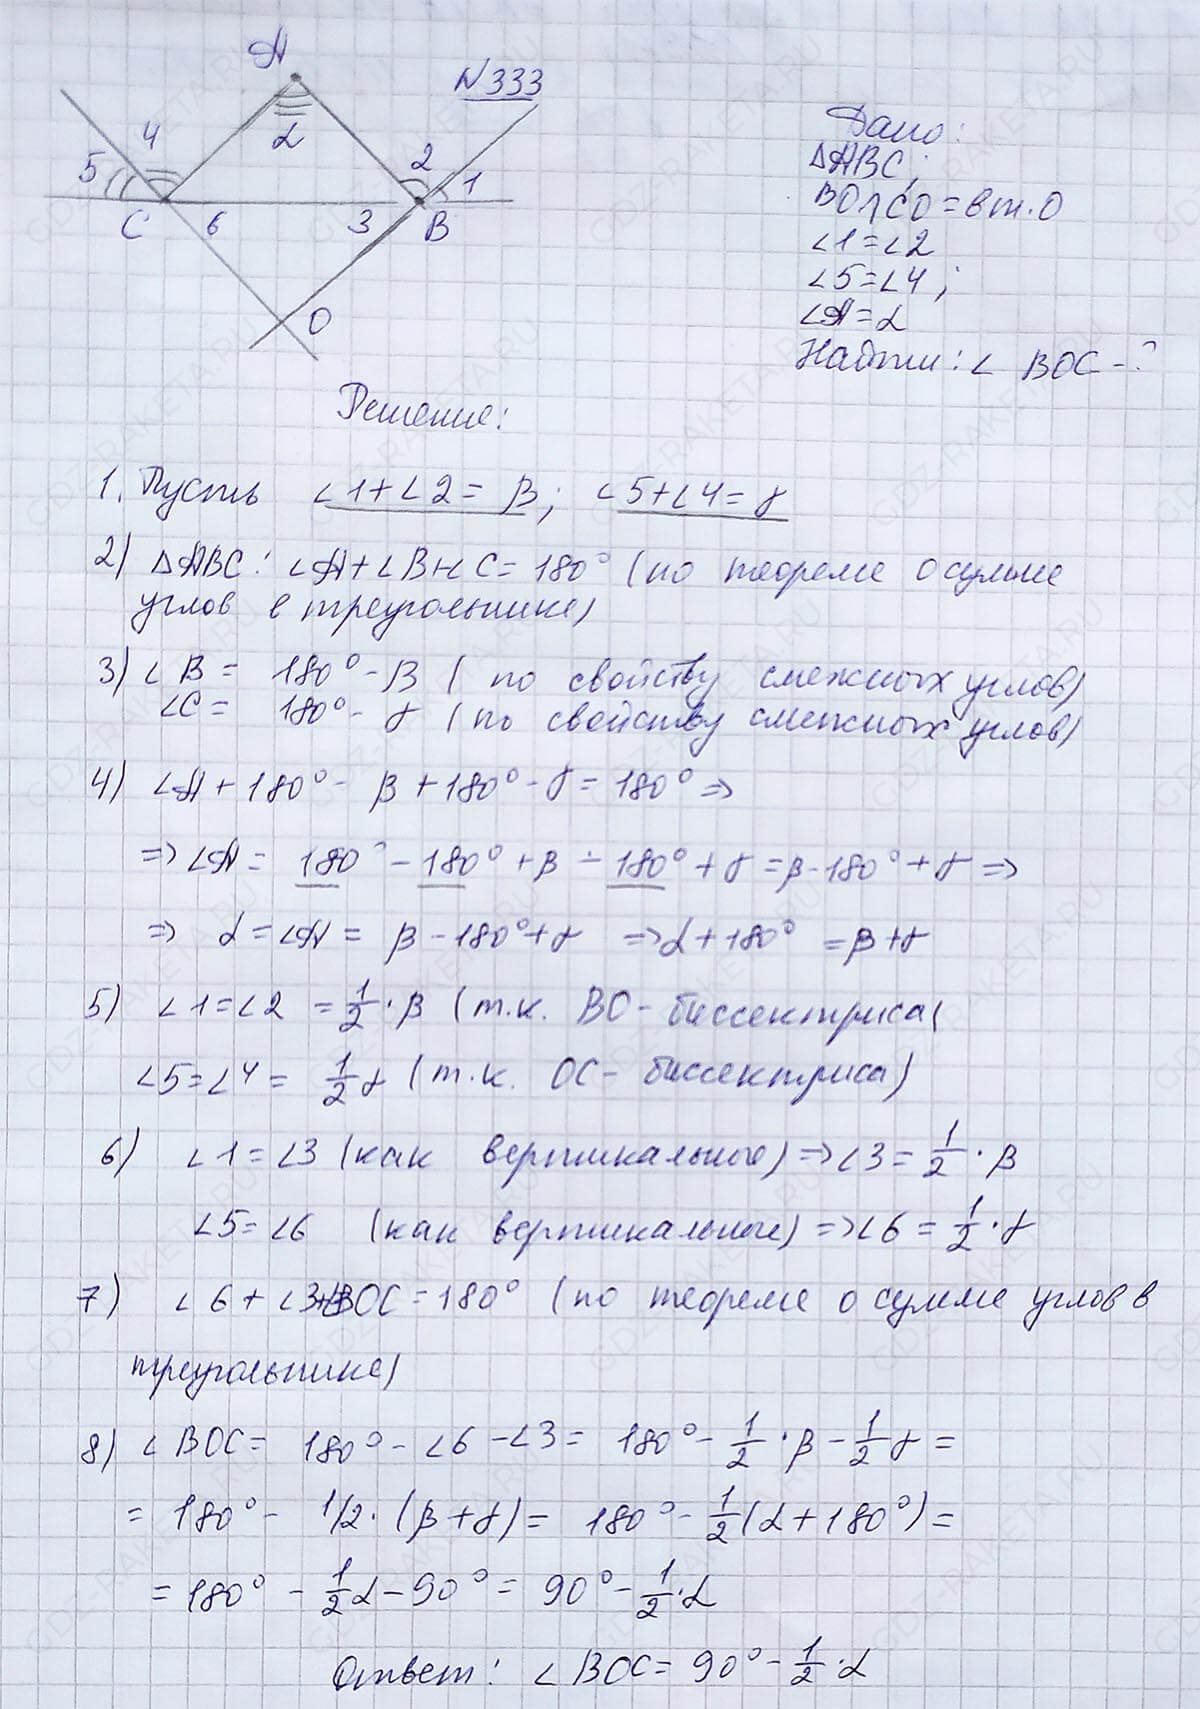 A
N333
4
α
5
2
1
C
6
3
B
O
Дано:
ΔABC;
BO∩CO = в т. O
∠1=∠2
∠5=∠4;
∠A=α
Найти: ∠ BOC-?
Решение:
1. Пусть ∠1+∠2= β; ∠5+∠4= γ
2) ΔABC: ∠A+∠B+∠C= 180° (по теореме о сумме
углов в треугольнике)
3) ∠B = 180°-β ( по свойству смежных углов)
∠C = 180°-γ (по свойству смежных углов)
4) ∠A+180°- β+180°-γ=180° =>
=> ∠A = 180° - 180° + β - 180° + γ = β-180°+γ =>
=> α=∠A = β-180°+γ => α+180° = β+γ
5) ∠1=∠2 = 1/2·β (т.к. BO-биссектриса(
∠5=∠4= 1/2 γ (т.к. OC- биссектриса)
6) ∠1=∠3 (как вертикальные) => ∠3 = 1/2·β
∠5=∠6 (как вертикальные) => ∠6 = 1/2·γ
7) ∠6+∠3+∠BOC=180° (по теореме о сумме углов в
треугольнике)
8) ∠BOC= 180°-∠6-∠3= 180°- 1/2·β - 1/2 γ =
= 180° - 1/2·(β+γ) = 180°- 1/2(α+180°) =
= 180° - 1/2 α - 90° = 90° - 1/2·α
Ответ: ∠BOC= 90° - 1/2·α
GDZ-RAKETA.RU